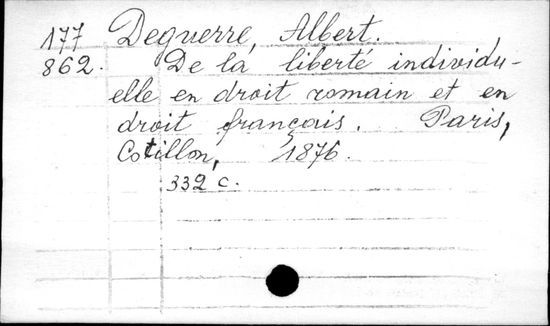 177 Deguerre, Albert.
862. De la liberté individu-
elle en droit romain et en
droit français. Paris,
Cotillon, 1876.
332 c.